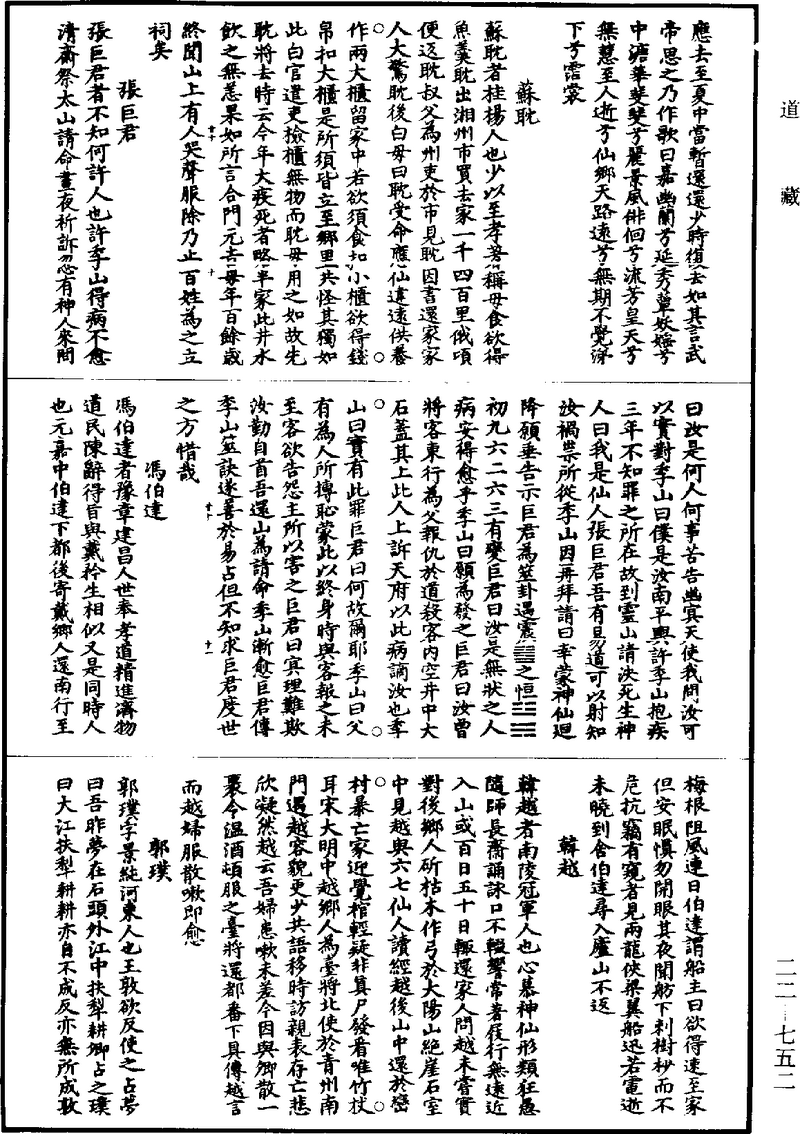 道藏
應去至夏中當暫還還少時復去如其言武
帝思之乃作歌曰嘉幽蘭兮延秀蕈妖婬兮
中溏華斐斐兮麗景風徘徊兮流芳皇天兮
無慧至人逝兮仙鄉天路遠兮無期不覺涕
下兮霑裳
蘇耽
蘇耽者桂楊人也少以至孝著稱母食欲得
魚羹耽出湘州市買去家一千四百里俄頃
便返耽叔父為州吏於市見耽因書還家家
人大驚耽後白母曰耽受命應仙違遠供養
作兩大櫃留家中若欲須食扣小櫃欲得錢
帛扣大櫃是所須皆立至鄉里共怪其獨如
此白官遣吏檢櫃無物而耽母用之如故先
耽將去時云今年大疫死者略半家此井水
飲之無恙果如所言合門元吉母年百餘歲
終聞山上有人哭聲服除乃止百姓為之立
祠矣
張巨君
張巨君者不知何許人也許季山得病不愈
清齋祭太山請命晝夜祈訴忽有神人來問
曰汝是何人何事苦告幽冥天使我問汝可
以實對季山曰僕是汝南平輿許季山抱疾
三年不知罪之所在故到靈山請決死生神
人曰我是仙人張巨君吾有易道可以射知
汝禍祟所從季山因再拜請曰幸蒙神仙迴
降願垂告示巨君為筮卦遇震䷲之恒䷟
初九六二六三有變巨君曰汝是無狀之人
病安得愈乎季山曰願為發之巨君曰汝曾
將客東行為父報仇於道殺客内空井中大
石蓋其上此人上訴天府以此病謫汝也季
山曰實有此罪巨君曰何故爾耶季山曰父
有為人所搏恥蒙此以終身時與客報之未
至客欲告怨主所以害之巨君曰冥理難欺
汝勤自首吾還山為請命季山漸愈巨君傳
季山筮訣遂善於易占但不知求巨君度世
之方惜哉
馮伯達
馮伯達者豫章建昌人世奉孝道精進濟物
道民陳辭得旨與戴矜生相似又是同時人
也元嘉中伯達下都後寄戴鄉人還南行至
梅根阻風連日伯達謂船主曰欲得速至家
但安眠慎勿開眼其夜聞舫下刺樹杪而不
危抗竊有窺者見兩龍俠梁翼船迅若電逝
未曉到舍伯達尋入廬山不返
韓越
韓越者南陵冠軍人也心慕神仙形類狂愚
隨師長齋誦詠口不輟響常著屐行無遠近
入山或百日五十日輒還家人問越未嘗實
對後鄉人斫枯木作弓於大陽山絕崖石室
中見越與六七仙人讀經越後山中還於巒
村暴亡家迎覺棺輕疑非真尸發看唯竹杖
耳宋大明中越鄉人為臺將北使於青州南
門遇越容貌更少共語移時訪親表存亡悲
欣凝然越云吾婦患嗽未差今因與卿散一
裹令溫酒頓服之臺將還都番下具傳越言
而越婦服散嗽即愈
郭璞
郭璞字景純河東人也王敦欲反使之占夢
曰吾昨夢在石頭外江中扶犁耕卿占之璞
曰大江扶犁耕耕亦自不成反亦無所成敦
二二—七五二